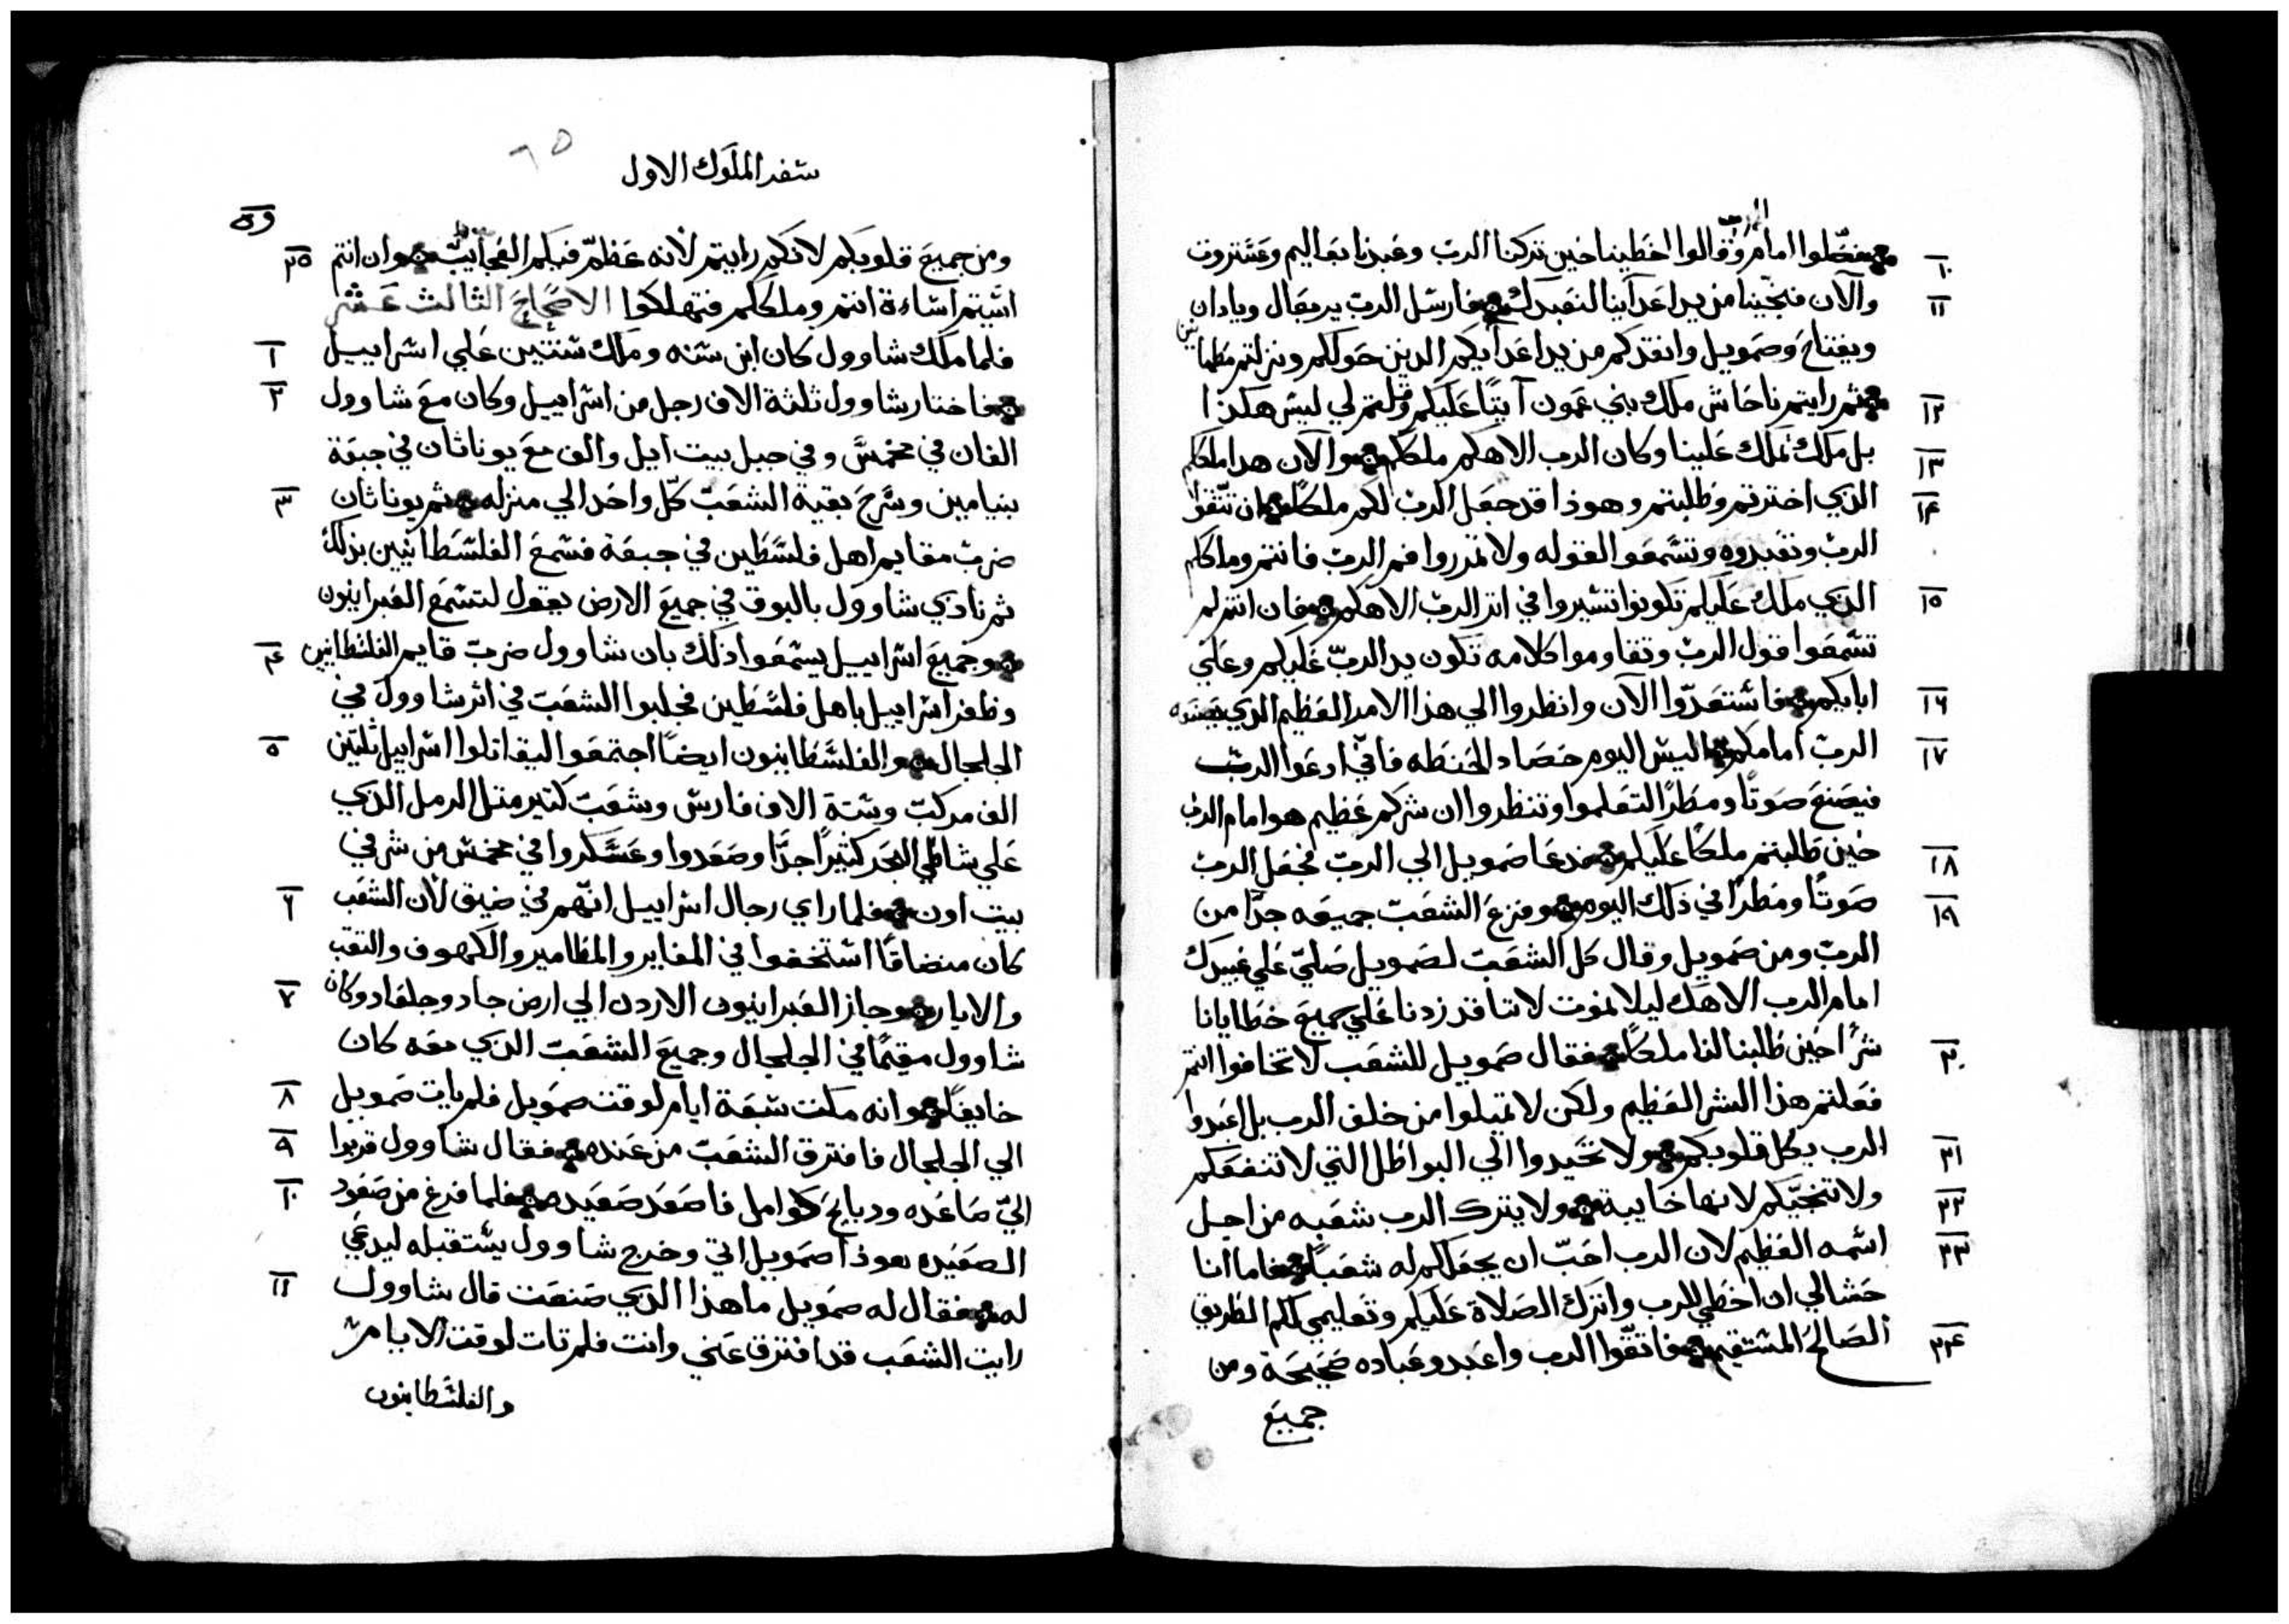 الرب
فضجّلوا امام وقالوا اخطينا حين تركنا الرب وعبدنا بعاليم وعشتروت
١٠
والآن فنجّينا من يد اعداينا لنعبدك فارسل الرب يربعال وبادان
١١
ويفتاح وصمويل وانقدكم من يد اعدايكم الدين حولكم ونزلتم مطمانين
ثم رايتم ناحاش ملك بني عمون آتيًا عليكم وقلتم لي ليس هكذا
١٢
بل ملك يملك علينا وكان الرب الاهكم ملككم والآن هدا ملككم
١٣
الذي اخترتم وطلبتم وهوذا قد جعل الرب لكم ملكًا ان تتقوا
١٤
الرب وتعبدوه وتسمعوا لقوله ولا تمرروا فم الرب فانتم وملككم
الذي ملك عليكم تكونوا تسيروا في اثر الرب الاهكم فان انتم لم
١٥
تسمعوا قول الرب وتقاوموا كلامه تكون يد الربّ عليكم وعلي
ابايكم فاستعدّوا الآن وانظروا الي هذا الامر العظيم الذي يصنعه
١٦
الرب امامكم اليس اليوم حصاد الحنطه فاني ادعوا الرب
١٧
فيصنع صوتًا ومطرًا لتعلموا وتنظروا ان شركم عظيم هو امام الرب
حين طلبتم ملكًا عليكم فدعا صمويل الي الرب فجعل الرب
١٨
صوتًا ومطرًا في ذلك اليوم وفزع الشعب جميعه جدًّا من
١٩
الرب ومن صمويل وقال كل الشعب لصمويل صليّ علي عبيدك
امام الرب الاهك ليلا نموت لاننا قد زدنا علي جميع خطايانا
شرًا حين طلبنا لنا ملكًا فقال صمويل للشعب لا تخافوا انتم
٢٠
فعلتم هذا الشر العظيم ولكن لا تميلوا من خلف الرب بل اعبدوا
الرب بكل قلوبكم ولا تحيدوا الي البواطل التي لا تنفعكم
٢١
ولا تنجّيكم لانها خايبة ولا يترك الرب شعبه من اجل
٢٢
اسمه العظيم لان الرب احبّ ان يجعلكم له شعبًا فاما انا
٢٣
حشا لي ان اخطي للرب واترك الصلاة عليكم وتعليمي لكم الطريق
الصالح المستقيم فاتقوا الرب واعبدو عباده صحيحة ومن
٢٤
جميع
سفر الملوك الاول
٦٥
ومن جميع قلوبكم لانكم رايتم لانه عظّم فيكم العجايب وان انتم
٢٥
اسّيتم اساءة انتم وملككم فتهلكوا الاصحاح الثالث عشر
فلما ملك شاوول كان ابن سنه وملك سنتين علي اسراييل
١
فاختار شاوول ثلثة الاف رجل من اسراييل وكان مع شاوول
٢
الفان في مخمس وفي جبل بيت ايل والف مع يوناثان في جبعة
بنيامين وسرّح بقية الشعب كلّ واحد الي منزله ثم يوناثان
٣
ضرب مقايم اهل فلسطين في جبعة فسمع الفلسطانيين بذلك
ثم نادي شاوول بالبوق في جميع الارض يقول لتسمع العبرانيون
وجميع اسراييل يسمعوا ذلك بان شاوول ضرب قايم الفلسطانيين
٤
وظفر اسراييل باهل فلسطين فجلبوا الشعب في اثر شاوول في
الجلجال والفلسطانيون ايضًا اجتمعوا ليقاتلوا اسراييل ثلثين
٥
الف مركب وستة الاف فارس وشعب كتير متل الرمل الذي
علي شاطي البحر كتيرًا جدًّا وصعدوا وعسكروا في مخمس من شرقي
بيت اون فلما راي رجال اسراييل انّهم في ضيق لان الشعب
٦
كان منضاقًا استخفوا في المغاير والمطامير والكهوف والنقب
والابار وجاز العبرانيون الاردن الي ارض جاد وجلعاد وكان
٧
شاوول مقيمًا في الجلجال وجميع الشعب الذي معه كان
خايفًا وانه مكت سبعة ايام لوقت صمويل فلم يات صمويل
٨
الي الجلجال فافترق الشعب من عنده فقال شاوول قربوا
٩
اليّ صاعده ودبايح كوامل فاصعد صعيده فلما فرغ من صعود
١٠
الصعيده هوذا صمويل اتي وخرج شاوول يستقبله ليدعي
له فقال له صمويل ما هذا الذي صنعت قال شاوول
١١
رايت الشعب قد افترق عني وانت فلم تات لوقت الايام
والفلسطانيون